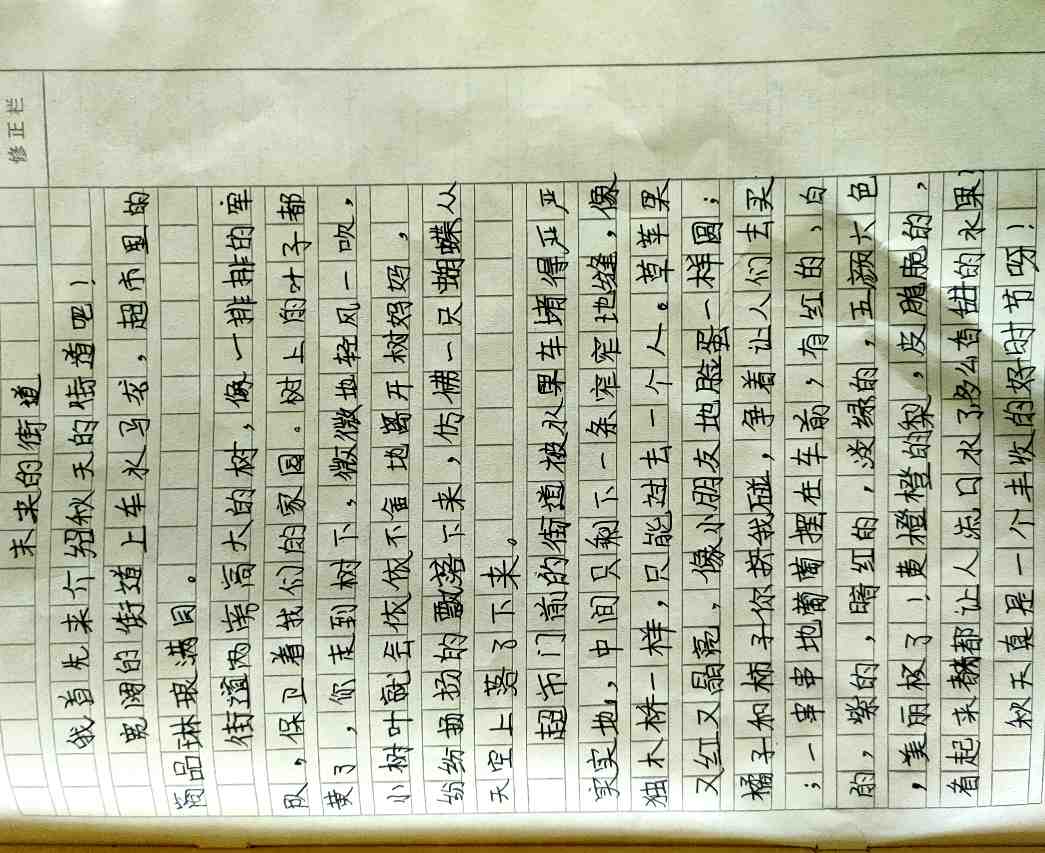 修正栏
未来的街道
我首先来介绍秋天的街道吧！
宽阔的街道上车水马龙，超市里的
商品琳琅满目。
街道两旁高大的树，像一排排的军
队，保卫着我们的家园。树上的叶子都
黄了，你走到树下，微微地轻风一吹，
小树叶就会依依不舍地离开树妈妈，
纷纷扬扬的飘落下来，仿佛一只蝴蝶从
天空上落了下来。
超市门前的街道被水果车堵得严严
实实地，中间只剩下一条窄窄地缝，像
独木桥一样，只能过去一个人。草苹果
又红又晶亮，像小朋友地脸蛋一样圆；
橘子和柿子你挤我碰，争着让人们去买
；一串串地葡萄摆在车前，有红的，白
的，紫的，暗红的，淡绿的，五颜六色
，美丽极了！黄橙橙的梨，皮脆脆的，
看起来都让人流口水了多么香甜的水果！
秋天真是一个丰收的好时节呀！